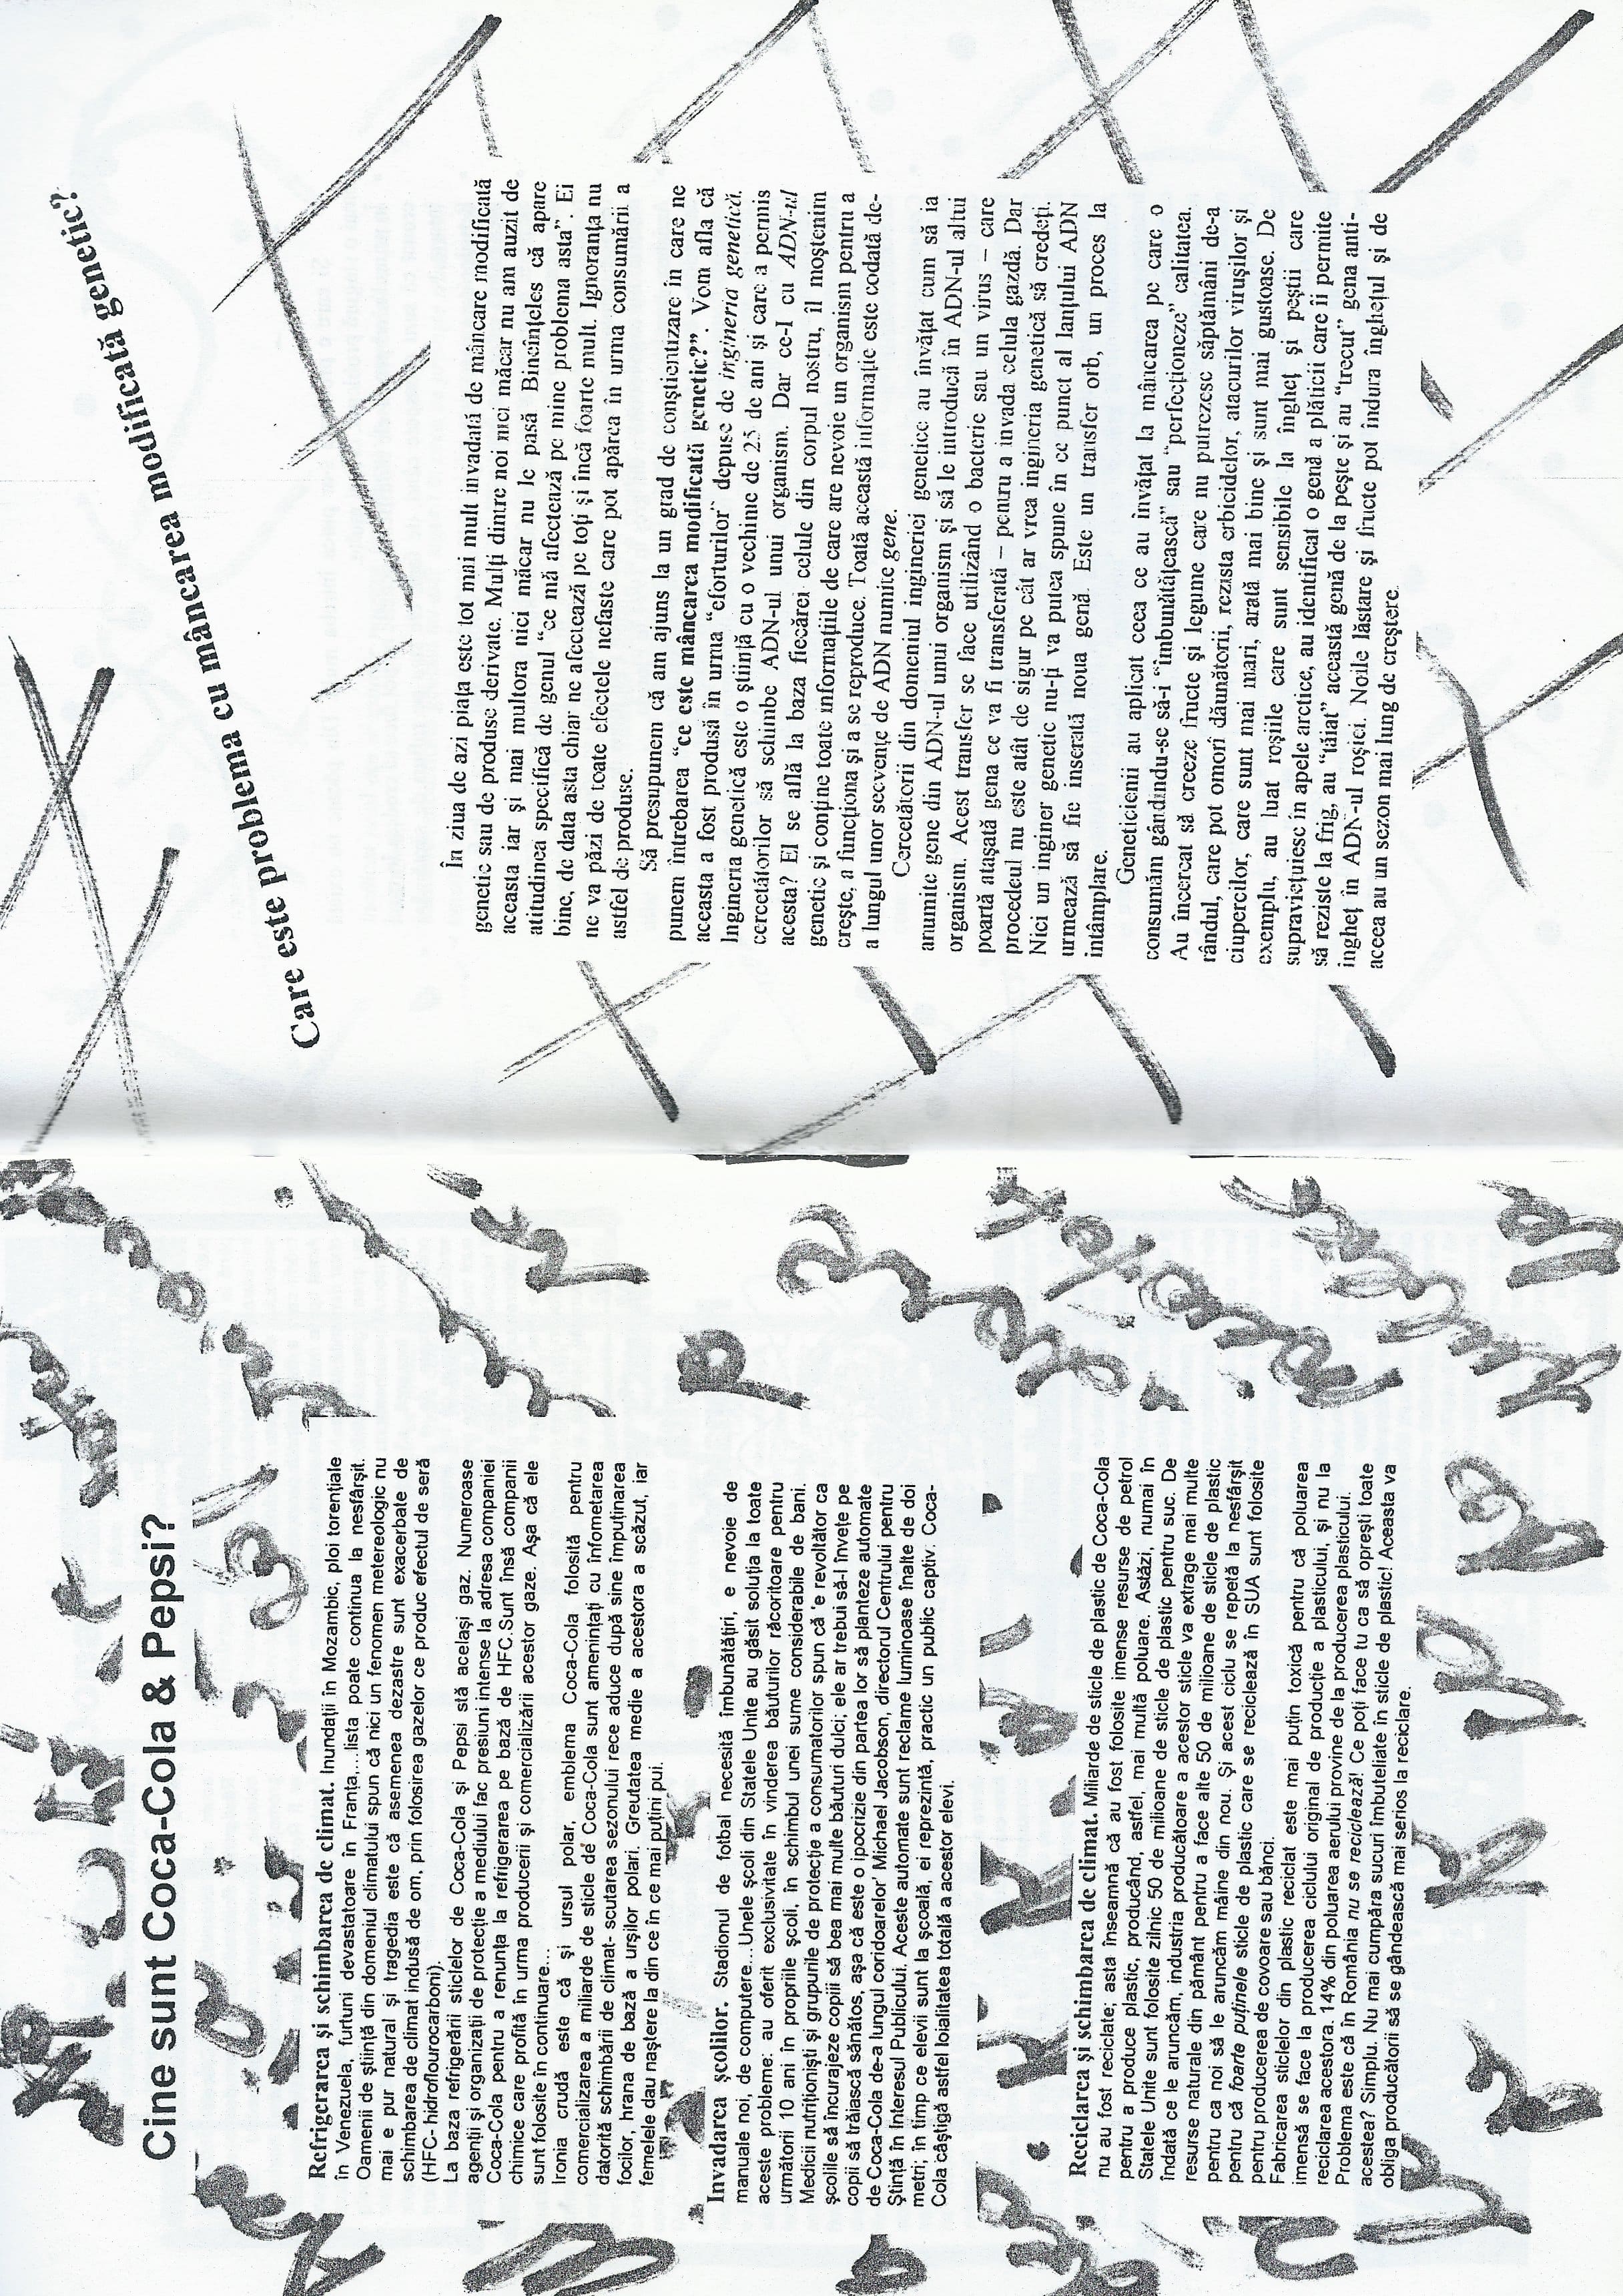 Cine sunt Coca-Cola & Pepsi?
Refrigerarea și schimbarea de climat. Inundații în Mozambic, ploi torențiale
în Venezuela, furtuni devastatoare în Franța,...lista poate continua la nesfârșit.
Oamenii de știință din domeniul climatului spun că nici un fenomen metereologic nu
mai e pur natural și tragedia este că asemenea dezastre sunt exacerbate de
schimbarea de climat indusă de om, prin folosirea gazelor ce produc efectul de seră
(HFC- hidroflourocarboni).
La baza refrigerării sticlelor de Coca-Cola și Pepsi stă același gaz. Numeroase
agenții și organizații de protecție a mediului fac presiuni intense la adresa companiei
Coca-Cola pentru a renunța la refrigerarea pe bază de HFC.Sunt însă companii
chimice care profită în urma producerii și comercializării acestor gaze. Așa că ele
sunt folosite în continuare...
Ironia crudă este că și ursul polar, emblema Coca-Cola folosită pentru
comercializarea a miliarde de sticle de Coca-Cola sunt amenințați cu înfometarea
datorită schimbării de climat- scutarea sezonului rece aduce după sine împuținarea
focilor, hrana de bază a urșilor polari. Greutatea medie a acestora a scăzut, iar
femelele dau naștere la din ce în ce mai puțini pui.
Invadarea școlilor. Stadionul de fotbal necesită îmbunătățiri, e nevoie de
manuale noi, de computere...Unele școli din Statele Unite au găsit soluția la toate
aceste probleme: au oferit exclusivitate în vinderea băuturilor răcoritoare pentru
următorii 10 ani în propriile școli, în schimbul unei sume considerabile de bani.
Medicii nutriționiști și grupurile de protecție a consumatorilor spun că 'e revoltător ca
școlile să încurajeze copiii să bea mai multe băuturi dulci; ele ar trebui să-i învețe pe
copii să trăiască sănătos, așa că este o ipocrizie din partea lor să planteze automate
de Coca-Cola de-a lungul coridoarelor' Michael Jacobson, directorul Centrului pentru
Știință în Interesul Publicului. Aceste automate sunt reclame luminoase înalte de doi
metri; în timp ce elevii sunt la școală, ei reprezintă, practic un public captiv. Coca-
Cola câștigă astfel loialitatea totală a acestor elevi.
Reciclarea și schimbarea de climat. Miliarde de sticle de plastic de Coca-Cola
nu au fost reciclate; asta înseamnă că au fost folosite imense resurse de petrol
pentru a produce plastic, producând, astfel, mai multă poluare. Astăzi, numai în
Statele Unite sunt folosite zilnic 50 de milioane de sticle de plastic pentru suc. De
îndată ce le aruncăm, industria producătoare a acestor sticle va extrage mai multe
resurse naturale din pământ pentru a face alte 50 de milioane de sticle de plastic
pentru ca noi să le aruncăm mâine din nou. Și acest ciclu se repetă la nesfârșit
pentru că foarte puținele sticle de plastic care se reciclează în SUA sunt folosite
pentru producerea de covoare sau bănci.
Fabricarea sticlelor din plastic reciclat este mai puțin toxică pentru că poluarea
imensă se face la producerea ciclului original de producție a plasticului, și nu la
reciclarea acestora. 14% din poluarea aerului provine de la producerea plasticului.
Problema este că în România nu se reciclează! Ce poți face tu ca să oprești toate
acestea? Simplu. Nu mai cumpăra sucuri îmbuteliate în sticle de plastic! Aceasta va
obliga producătorii să se gândească mai serios la reciclare.
Care este problema cu mâncarea modificată genetic?
În ziua de azi piața este tot mai mult invadată de mâncare modificată
genetic sau de produse derivate. Mulți dintre noi nici măcar nu am auzit de
aceasta iar și mai multora nici măcar nu le pasă. Bineînțeles că apare
atitudinea specifică de genul “ce mă afectează pe mine problema asta”. Ei
bine, de data asta chiar ne afectează pe toți și încă foarte mult. Ignoranța nu
ne va păzi de toate efectele nefaste care pot apărea în urma consumării a
astfel de produse.
Să presupunem că am ajuns la un grad de conștientizare în care ne
punem întrebarea “ce este mâncarea modificată genetic?”. Vom afla că
aceasta a fost produsă în urma “eforturilor” depuse de ingineria genetică.
Ingineria genetică este o știință cu o vechime de 25 de ani și care a permis
cercetătorilor să schimbe ADN-ul unui organism. Dar ce-I cu ADN-ul
acesta? El se află la baza fiecărei celule din corpul nostru, îl moștenim
genetic și conține toate informațiile de care are nevoie un organism pentru a
crește, a funcționa și a se reproduce. Toată această informație este codată de-
a lungul unor secvențe de ADN numite gene.
Cercetătorii din domeniul ingineriei genetice au învățat cum să ia
anumite gene din ADN-ul unui organism și să le introducă în ADN-ul altui
organism. Acest transfer se face utilizând o bacterie sau un virus – care
poartă atașată gena ce va fi transferată – pentru a invada celula gazdă. Dar
procedeul nu este atât de sigur pe cât ar vrea ingineria genetică să credeți.
Nici un inginer genetic nu-ți va putea spune în ce punct al lanțului ADN
urmează să fie inserată noua genă. Este un transfer orb, un proces la
întâmplare.
Geneticienii au aplicat ceea ce au învățat la mâncarea pe care o
consumăm gândindu-se să-i “îmbunătățească” sau “perfecționeze” calitatea.
Au încercat să creeze fructe și legume care nu putrezesc săptămâni de-a
rândul, care pot omorî dăunătorii, rezista erbicidelor, atacurilor virușilor și
ciupercilor, care sunt mai mari, arată mai bine și sunt mai gustoase. De
exemplu, au luat roșiile care sunt sensibile la îngheț și peștii care
supraviețuiesc în apele arctice, au identificat o genă a plăticii care îi permite
să reziste la frig, au “tăiat” această genă de la pește și au “trecut” gena anti-
îngheț în ADN-ul roșiei. Noile lăstare și fructe pot îndura înghețul și de
aceea au un sezon mai lung de creștere.